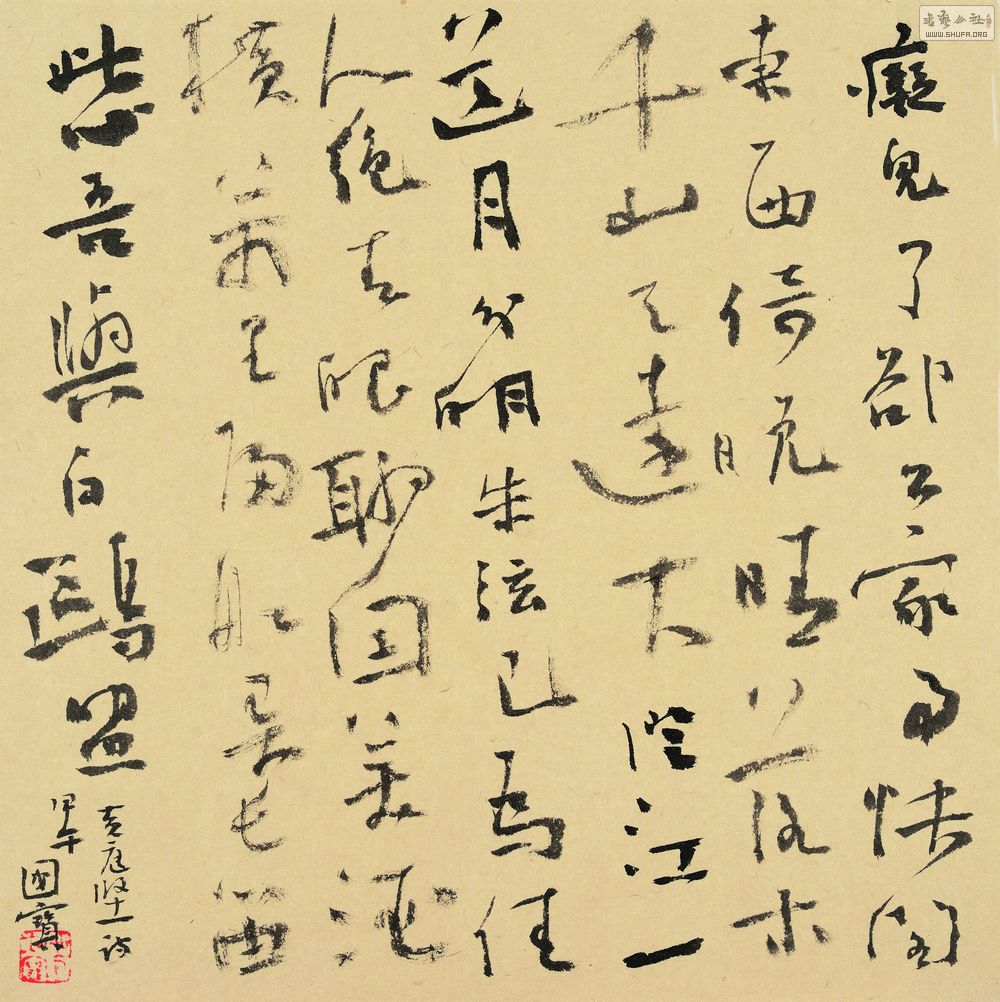 癡兒了卻公家事快閣
東西倚晚晴落木
千山天遠大澄江一
道月分明朱弦已為佳
人絕青眼聊因美酒
橫萬里歸船弄長笛
此心吾與白鷗盟
黃庭堅一詩
甲午國寶
書藝公社
WWW.SHUFA.ORG